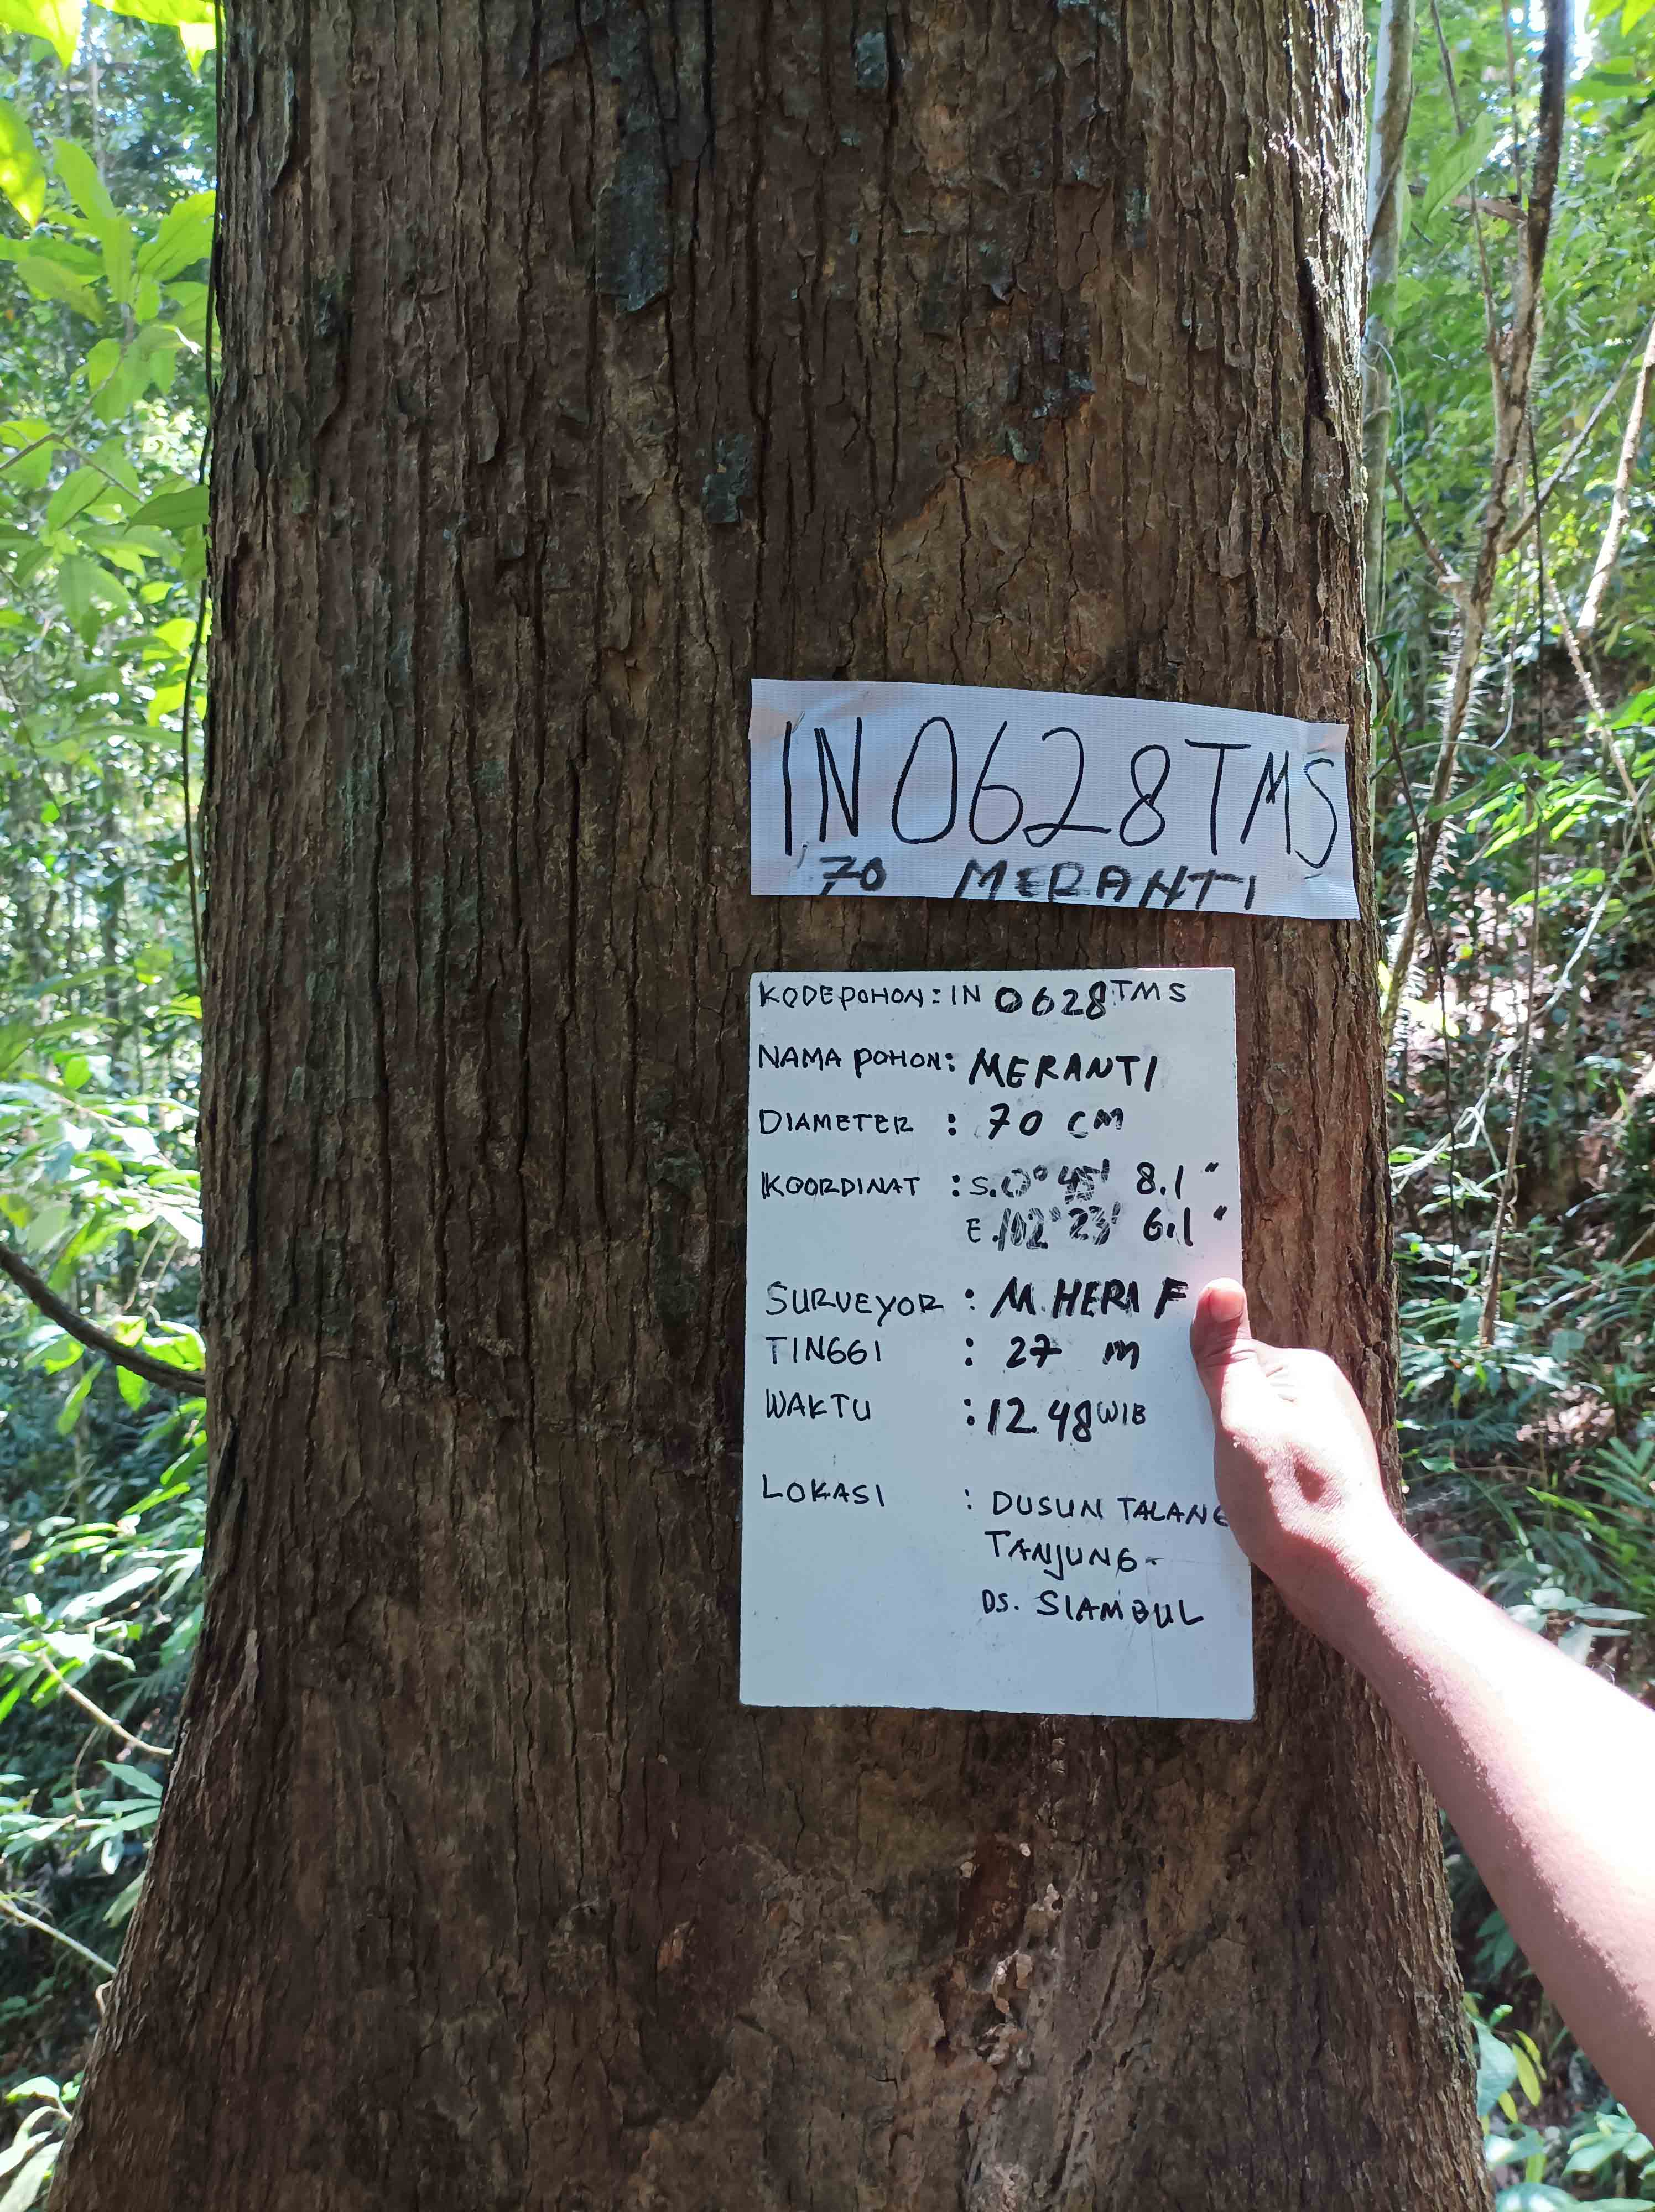 IN 0628 TMS
70 MERANTI
KODE POHON : IN 0628 TMS
NAMA POHON : MERANTI
DIAMETER : 70 CM
KOORDINAT : S. 0° 45' 8.1"
E. 102° 23' 6.1"
SURVEYOR : M. HERI F
TINGGI : 27 m
WAKTU : 12.48 WIB
LOKASI : DUSUN TALANG
TANJUNG -
DS. SIAMBUL